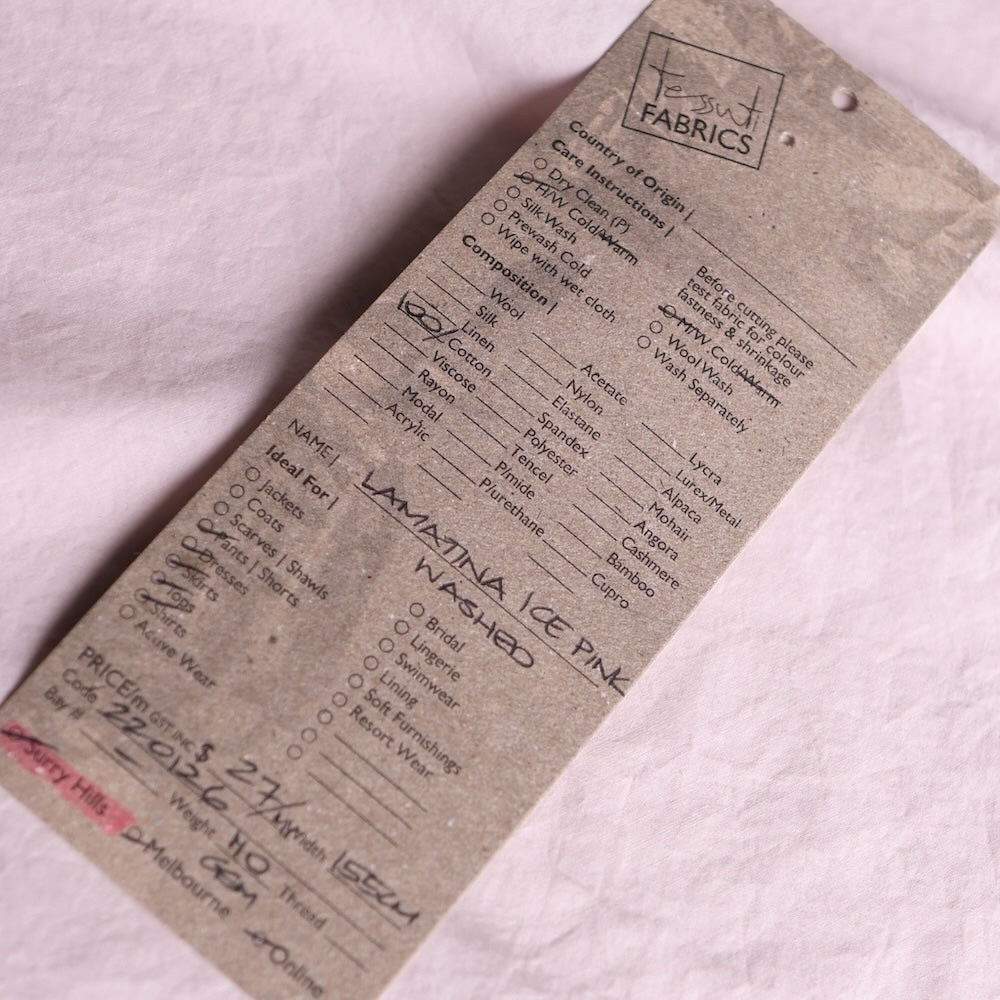 tessuti
FABRICS
Country of Origin |
Care Instructions |
Dry Clean (P)
H/W Cold/Warm
Silk Wash
Prewash Cold
Wipe with wet cloth
Before cutting please
test fabric for colour
fastness & shrinkage
M/W Cold/Warm
Wool Wash
Wash Separately
Composition |
Wool
Silk
Linen
100/ Cotton
Viscose
Rayon
Modal
Acrylic
Acetate
Nylon
Elastane
Spandex
Polyester
Tencel
P/mide
P/urethane
Lycra
Lurex/Metal
Alpaca
Mohair
Angora
Cashmere
Bamboo
Cupro
NAME | LAMATINA ICE PINK
WASHED
Ideal For |
Jackets
Coats
Scarves | Shawls
Pants | Shorts
Dresses
Skirts
Tops
Shirts
Active Wear
Bridal
Lingerie
Swimwear
Lining
Soft Furnishings
Resort Wear
PRICE/m GST INC $ 27/m
Code 220126 Width 155cm
Bay # Weight 110 GSM Thread
Surry Hills Melbourne Online